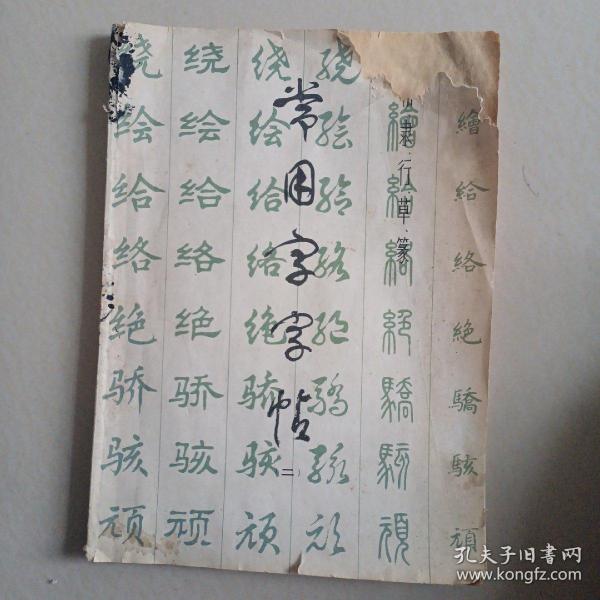 常用字字帖
(二)
隶·行·草·篆
绕 绕 绕 绕
绘 绘 绘 绘 繪 繪
给 给 给 给 給 給
络 络 络 络 絡 絡
绝 绝 绝 绝 絕 絕
骄 骄 骄 骄 驕 驕
骇 骇 骇 骇 駭 駭
顽 顽 顽 顽 頑 頑
孔夫子旧书网
www.kongfz.com